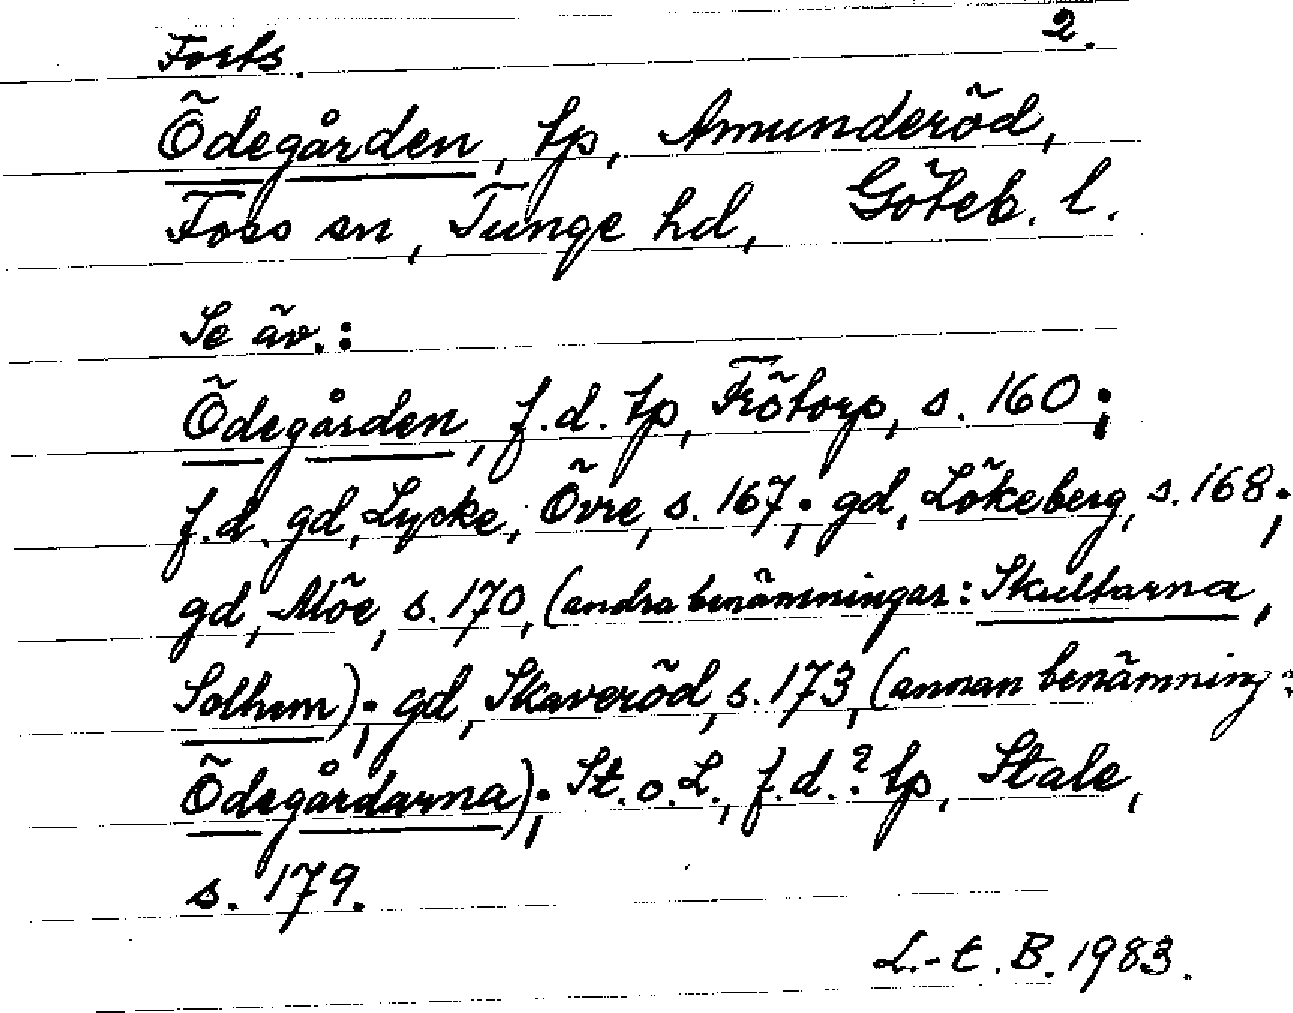 Forts. 2.
Ödegården, tp, Amunderöd,
Foss sn, Tunge hd, Göteb. l.
Se äv.:
Ödegården, f.d. tp, Frötorp, s. 160;
f.d. gd, Lycke, Övre, s. 167; gd, Lökeberg, s. 168;
gd, Möe, s. 170, (andra benämningar: Skultarna,
Solhem); gd, Skaveröd, s. 173, (annan benämning:
Ödegårdarna); St. o. L., f.d.? tp, Stale,
s. 179.
L.-t. B. 1983.